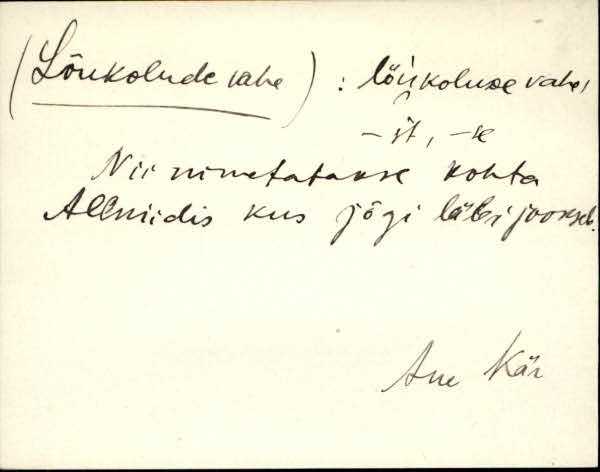 (Lõukolude vahe) : lõukoluse vahe,
– st, – se
Nii nimetatakse kohta
Allniidis kus jõgi läbi jookseb.
Ane Kär